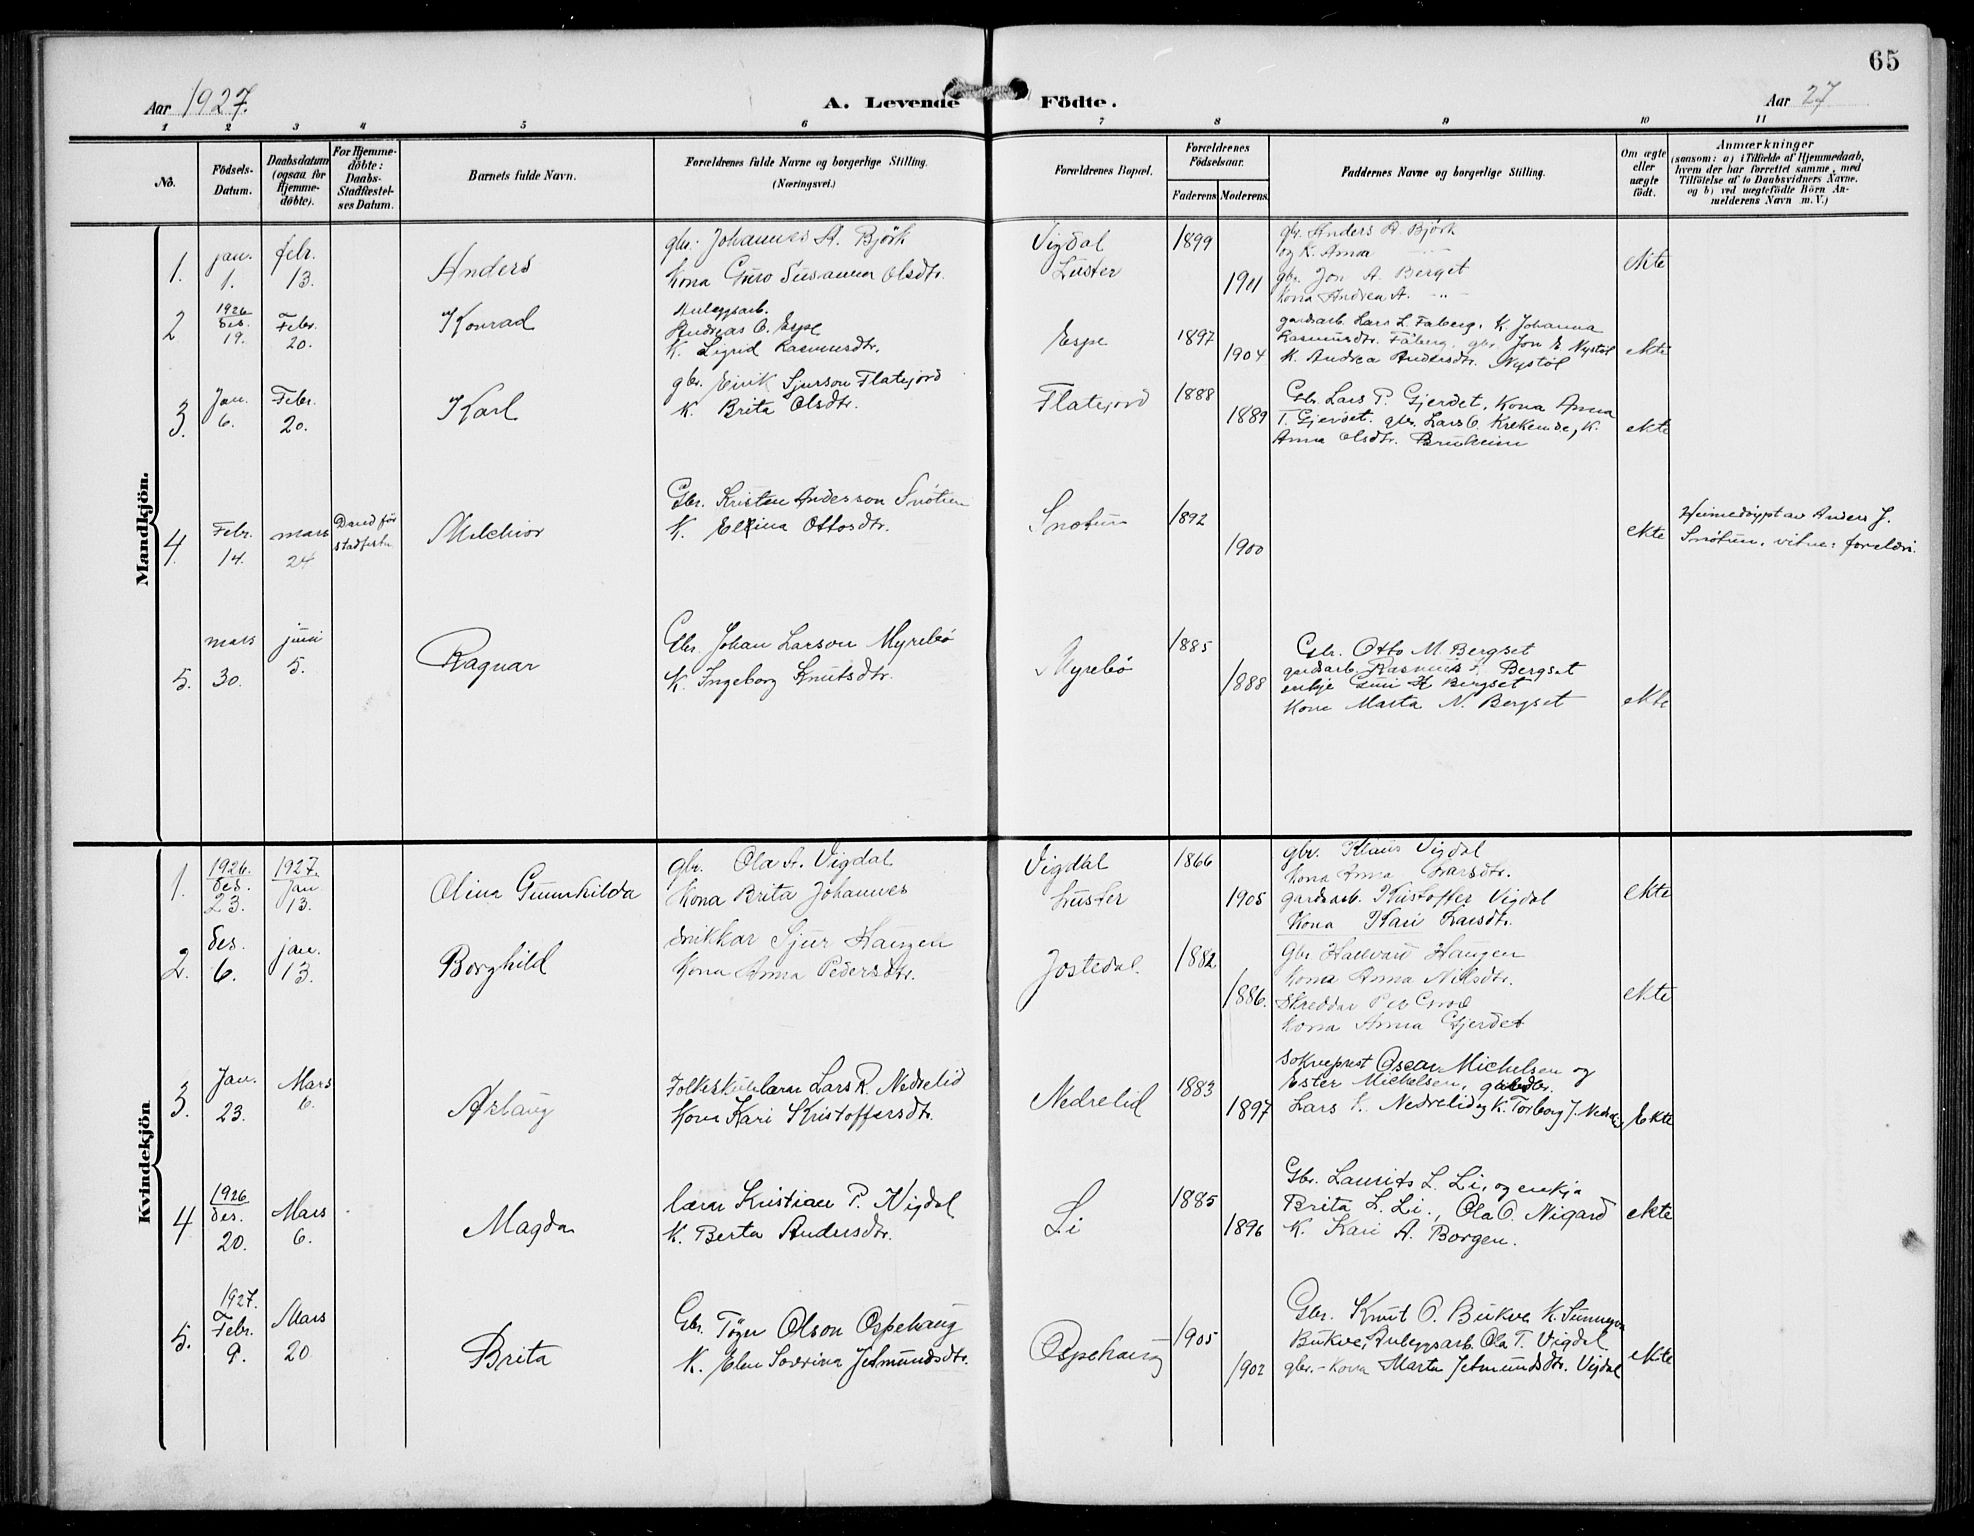 65
Aar 1927.
A. Levende Födte.
Aar 27
1 2 3 4 5 6 7 8 9 10 11
No.
Födsels-
Datum.
Daabsdatum
(ogsaa for
Hjemme-
döbte).
For Hjemme-
döbte:
Daabs-
Stadfæstel-
ses Datum.
Barnets fulde Navn.
Forældrenes fulde Navne og borgerlige Stilling.
(Næringsvei.)
Forældrenes Bopæl.
Forældrenes
Födselsaar.
Faderens. Moderens.
Faddernes Navne og borgerlige Stilling.
Om ægte
eller
uægte
födt.
Anmærkninger
(saasom: a) i Tilfælde af Hjemmedaab,
hvem der har forrettet samme, med
Tilföielse af to Daabsvidners Navne.
og b) ved uægtefödte Börn An-
melderens Navn m. V.)
Mandkjön.
1.
jan.
1.
febr.
13.
Anders
gbr. Johannes A. Björk
Kona Guro Susanna Olsdtr.
Vigdal
Luster
1899
1901
gbr. Anders A. Björk
og K. Anna
gbr. Jon A. Berget
Kona Andrea A. - " -
ekte
2
1926
des.
19.
Febr.
20.
Konrad
Anleggsarb.
Andreas O. Espe
K. Sigrid Rasmusdtr.
Espe
1897
1904
gardsarb. Lars L. Faberg, K. Johanna
Rasmusdtr. Fåberg, gbr. Jon E. Nystöl
K. Andrea Andersdtr. Nystöl
ekte
3.
Jan.
6.
Febr.
20.
Karl
gbr. Eirik Sjurson Flatejord
K. Brita Olsdtr.
Flatejord
1888
1889
Gbr. Lars P. Gjerdet, Kona Anna
T. Gjerdet. gbr. Lars O. Krekende, K.
Anna Olsdtr. Bruheim
ekte
4.
Febr.
14.
mars
24
Daud för
stadfeste
Melchior
Gbr. Kristen Anderson Snötun
K. Elina Ottosdtr.
Snötun
1892
1900
ekte
Heimedöypt av Anders J.
Snötun, vitne: foreldri.
5.
mars
30.
juni
5.
Ragnar
Gbr. Johan Larson Myrebö
K. Ingeborg Knutsdtr.
Myrebö
1885
1888
Gbr. Otto M. Bergset
gardsarb. Rasmus Bergset
enkje Guri H Bergset
Kona Marta N. Bergset
ekte
Kvindekjön
1.
1926.
des.
23.
1927.
jan
13.
Olina Gunnhilda
gbr. Ola A. Vigdal
Kona Brita Johannes
Vigdal
Luster
1866
1905
gbr. Klaus Vigdal
Kona Anna Larsdtr.
gardsarb. Kristoffer Vigdal
Kona Kari Larsdtr.
ekte
2.
des.
6.
jan.
13.
Borghild
snikkar Sjur Haugen
Kona Anna Pedersdtr.
Jostedal.
1882
1886.
Gbr Hallvard Haugen
Kona Anna Nilsdtr.
Skreddar Per
Kona Anna Gjerdet
ekte
3.
Jan.
23.
Mars
6.
Aslaug
Folkeskulelærar Lars R. Nedrelid
Kona Kari Kristoffersdtr.
Nedrelid
1883
1897
Sokneprest Oscar Michelsen og
Ester Michelsen, gardbr.
Lars Nedrelid og K. Torborg J. Nedrelid
Ekte
4
1926
des.
20.
Mars
6.
Magda
lærar Kristian P. Nigdol
K. Berta Andersdtr.
Li
1885
1896
Gbr. Laurits L. Li, og enkja
Brita L. Li., Ola O. Nigard
K. Kari A. Borgen.
ekte
5.
1927.
Febr.
9.
Mars
20
Brita
Gbr. Töger Olson Ospehaug
K. Elen Soverina Jetmundsdtr.
Ospehaug
1905
1902
Gbr. Knut O. Bukve, K. Sunneva
Bukve, Anleggsarb. Ola T. Vigdal
gbr.-kona Marta Jetmundsdtr. Vigdal
ekte